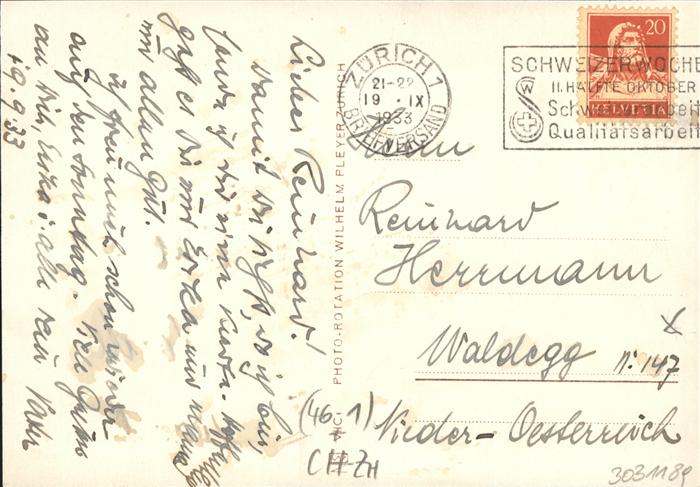 Lieber Reinhard!
Damit Du siehst, wo ich bin,
sende ich dir eine Karte. Hoffentlich
geht es Dir und Erika und Mama
allen gut.
Ich freu mich schon wieder
auf den Sonntag. Viele Grüße
an Dich, Erika & alle Dein Vater
19.9.33
PHOTO-ROTATION WILHELM PLEYER ZÜRICH
ZÜRICH 1
21-22
19 · IX
1933
BRIEFVERSAND
20
HELVETIA
SCHWEIZERWOCHE
II. HÄLFTE OKTOBER
Schweizerarbeit
Qualitätsarbeit
Herrn
Reinhard
Herrmann
Waldegg N: 147
Nieder-Oesterreich
(46-1)
CHZH
3031189